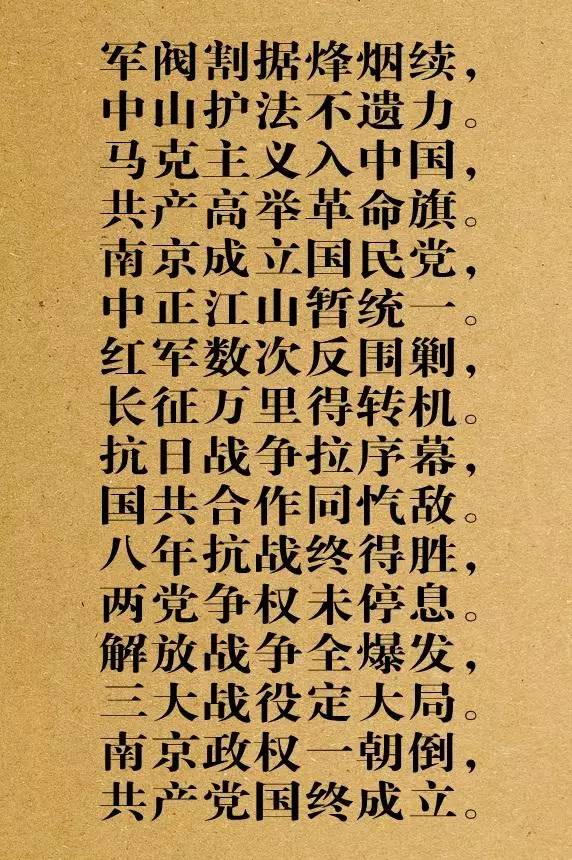 军阀割据烽烟续，
中山护法不遗力。
马克主义入中国，
共产高举革命旗。
南京成立国民党，
中正江山暂统一。
红军数次反围剿，
长征万里得转机。
抗日战争拉序幕，
国共合作同忾敌。
八年抗战终得胜，
两党争权未停息。
解放战争全爆发，
三大战役定大局。
南京政权一朝倒，
共产党国终成立。